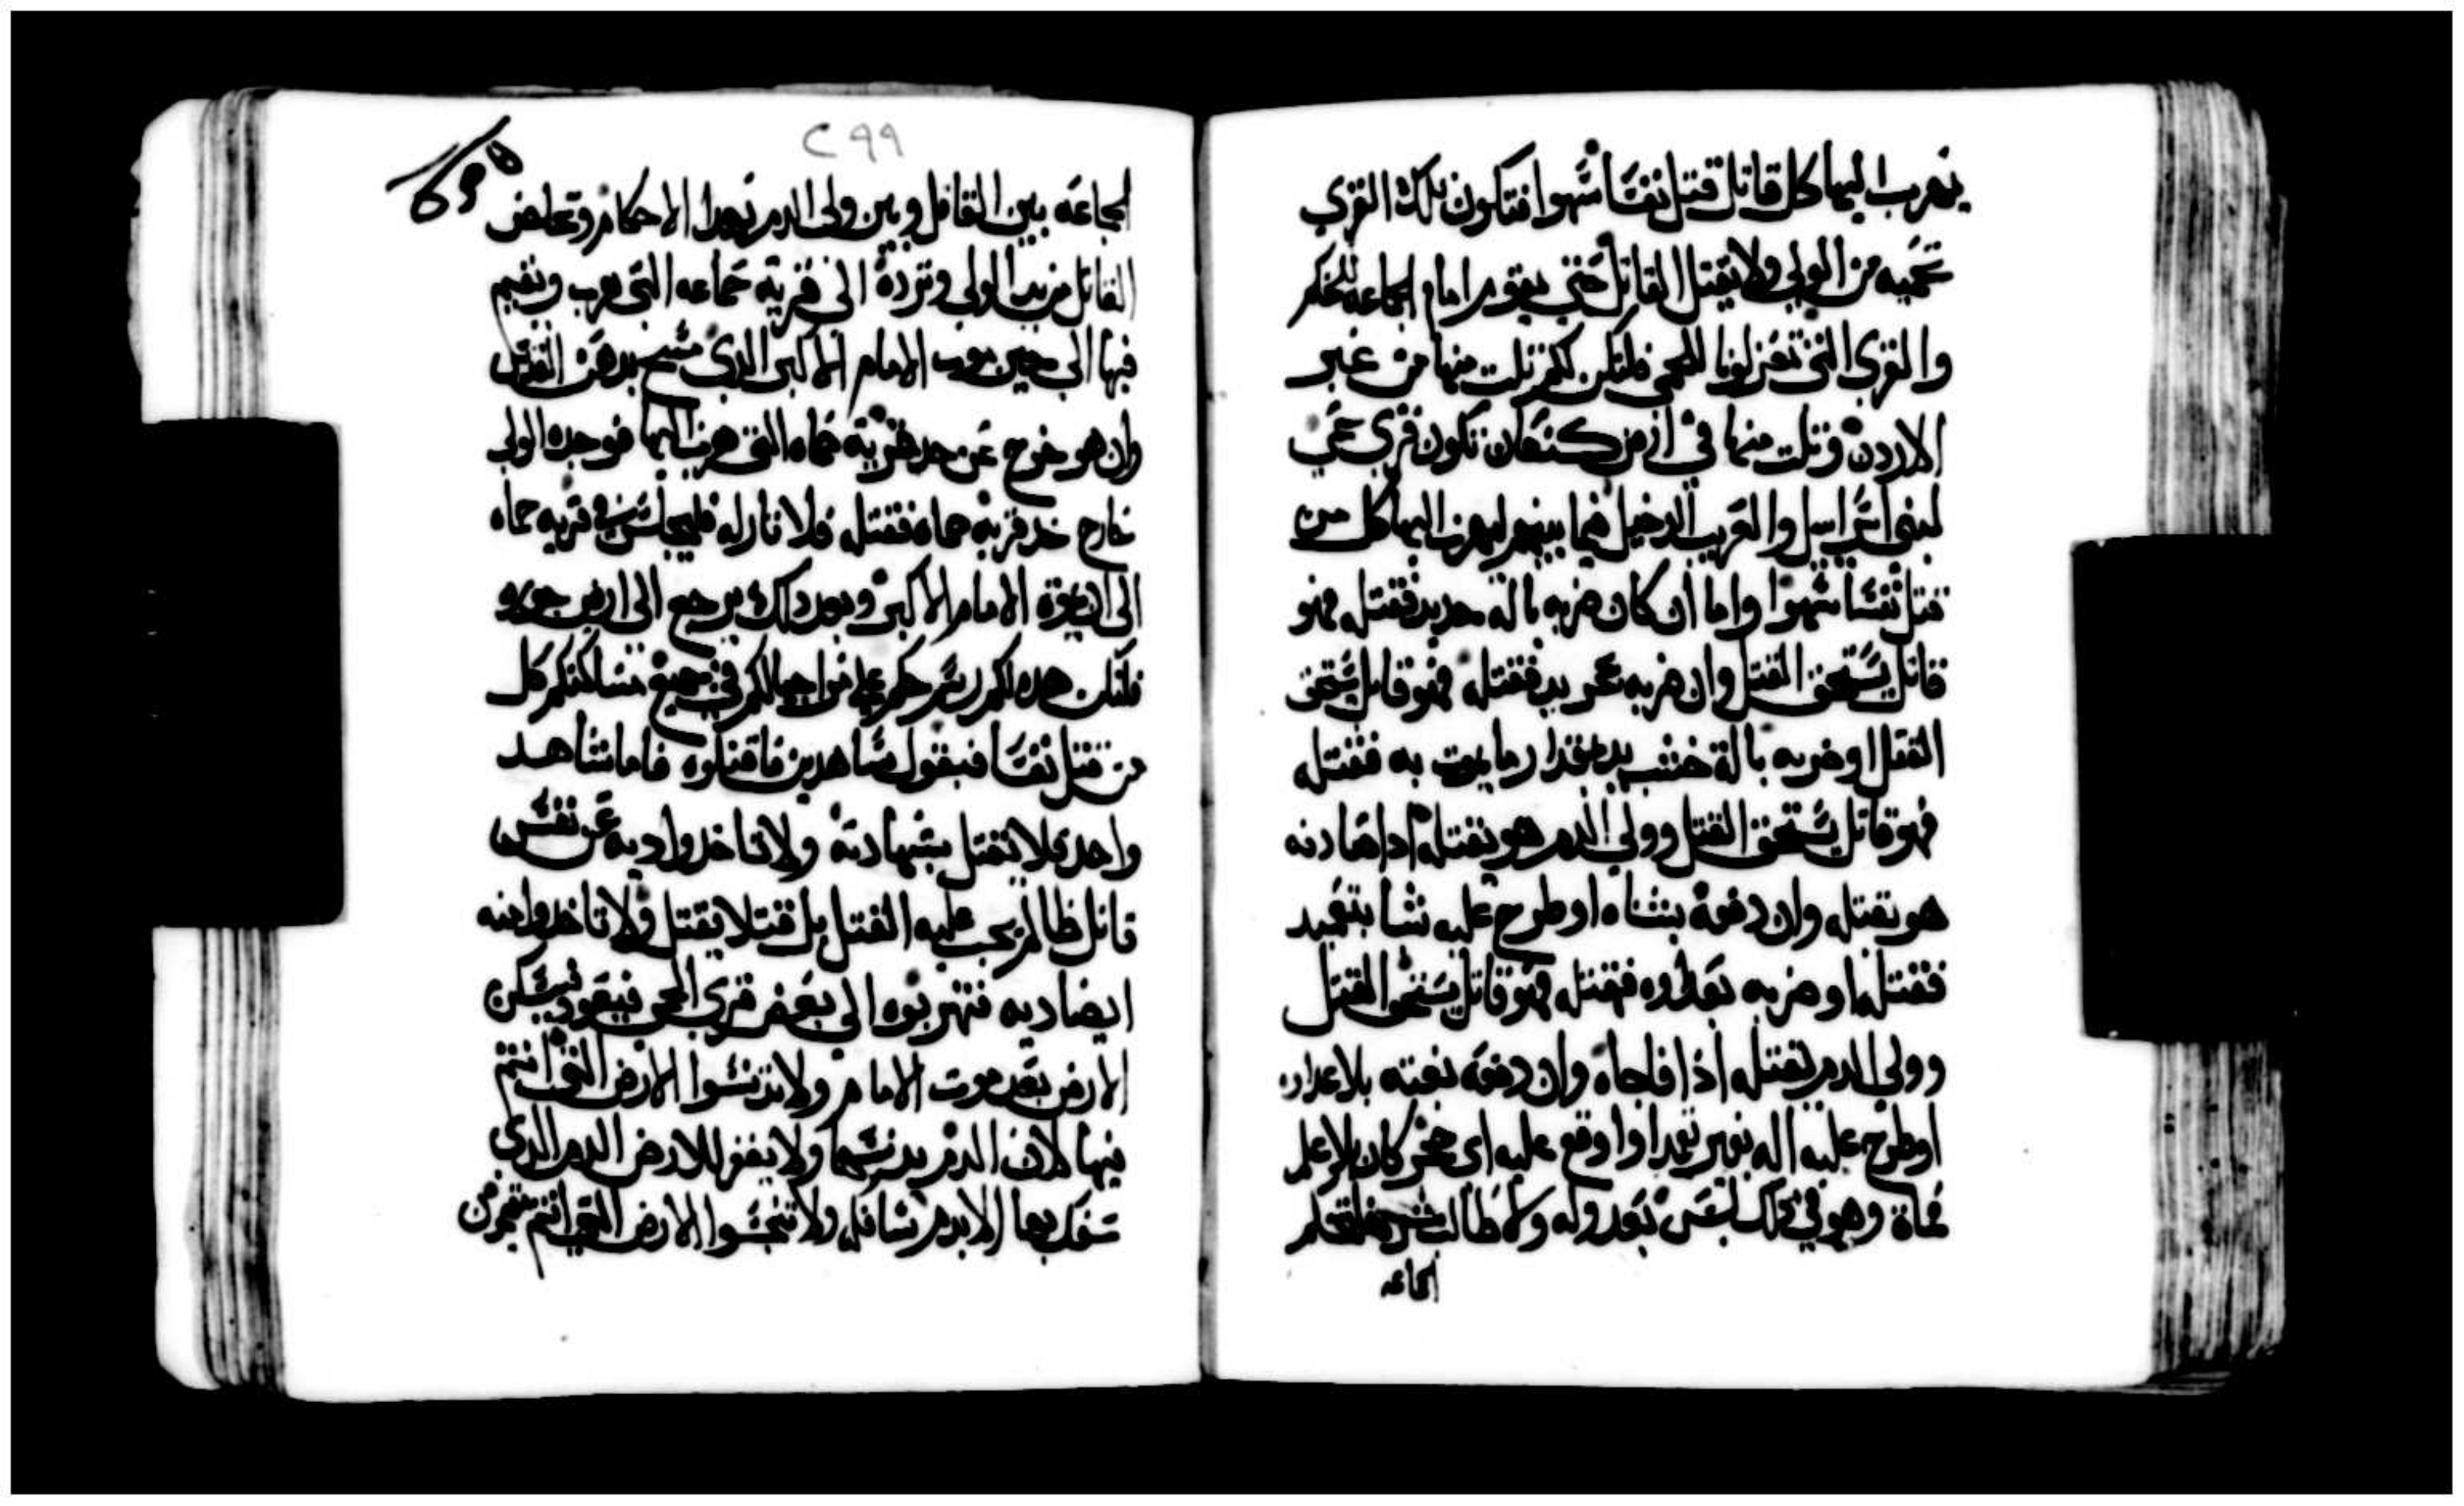 يهرب اليها كل قاتل قتل نفسًا سهوا فتكون تلك القري
تحميه من الولي ولا يقتل القاتل حتي يقوم امام الجماعه للحكم
والقري التي تعزلونها للحمي فلتكن لكم تلت منها من عبر
الاردن وتلت منها في ارض كنعان تكون قري حمي
لبني اسراييل والغريب الدخيل فيما بينهم ليهرب اليها كل من
قتل نفسًا سهوا واما ان كان ضربه بالة حديد فقتله فهو
قاتل يستحق القتل وان ضربه بحجر بيد فقتله فهو قاتل يستحق
القتل او ضربه بالة خشب بيد مقدار ما يموت به فقتله
فهو قاتل يستحق القتل وولي الدم هو يقتله اذا صادفه
هو يقتله وان دفعه بشناه او طرح عليه شيا بتعمد
فقتله او ضربه بعداوه فقتله فهو قاتل يستحق القتل
وولي الدم يقتله اذا فاجاه وان دفعه بغته بلا عداوه
او طرح عليه اله بغير تعمد او اوقع عليه اي حجر كان بلا علم
فماة وهو في ذلك ليس بعدو له ولا طالب شره فلتحكم
الجماعه
٢٩٩
الجماعه بين القاتل وبين ولي الدم بهذا الاحكام وتخلص
القاتل من يد الولي وترده الي قرية حماعه التي هرب ويقيم
فيها الي حين موت الامام الاكبر الذي مسح بدهن القدس
وان هو خرج عن حد قرية حماه التي هرب اليها فوجده الولي
خارج حد قرية حماه فقتله فلا ثار له فليجلس في قرية حماه
الي ان يموت الامام الاكبر وبعد ذلك يرجع الي ارض حوزه
فلتكن هذه لكم رسم حكم علي مر اجيالكم في جميع مساكنكم كل
من قتل نفسًا فبقول شاهدين فاقتلوه فاما شاهد
واحد فلا تقتل بشهادته ولا تاخذوا ديه عن نفس
قاتل ظالم يجب عليه القتل بل قتلا يقتل ولا تاخذوا منه
ايضا ديه فتهربوه الي بعض قري الحمي فيعود فيسكن
الارض بعد موت الامام ولا تدنسوا الارض التي انتم
فيها لان الدم يدنسها ولا يغفر للارض الدم الذي
سفك بها الا بدم سافكه ولا تنجسوا الارض التي انتم